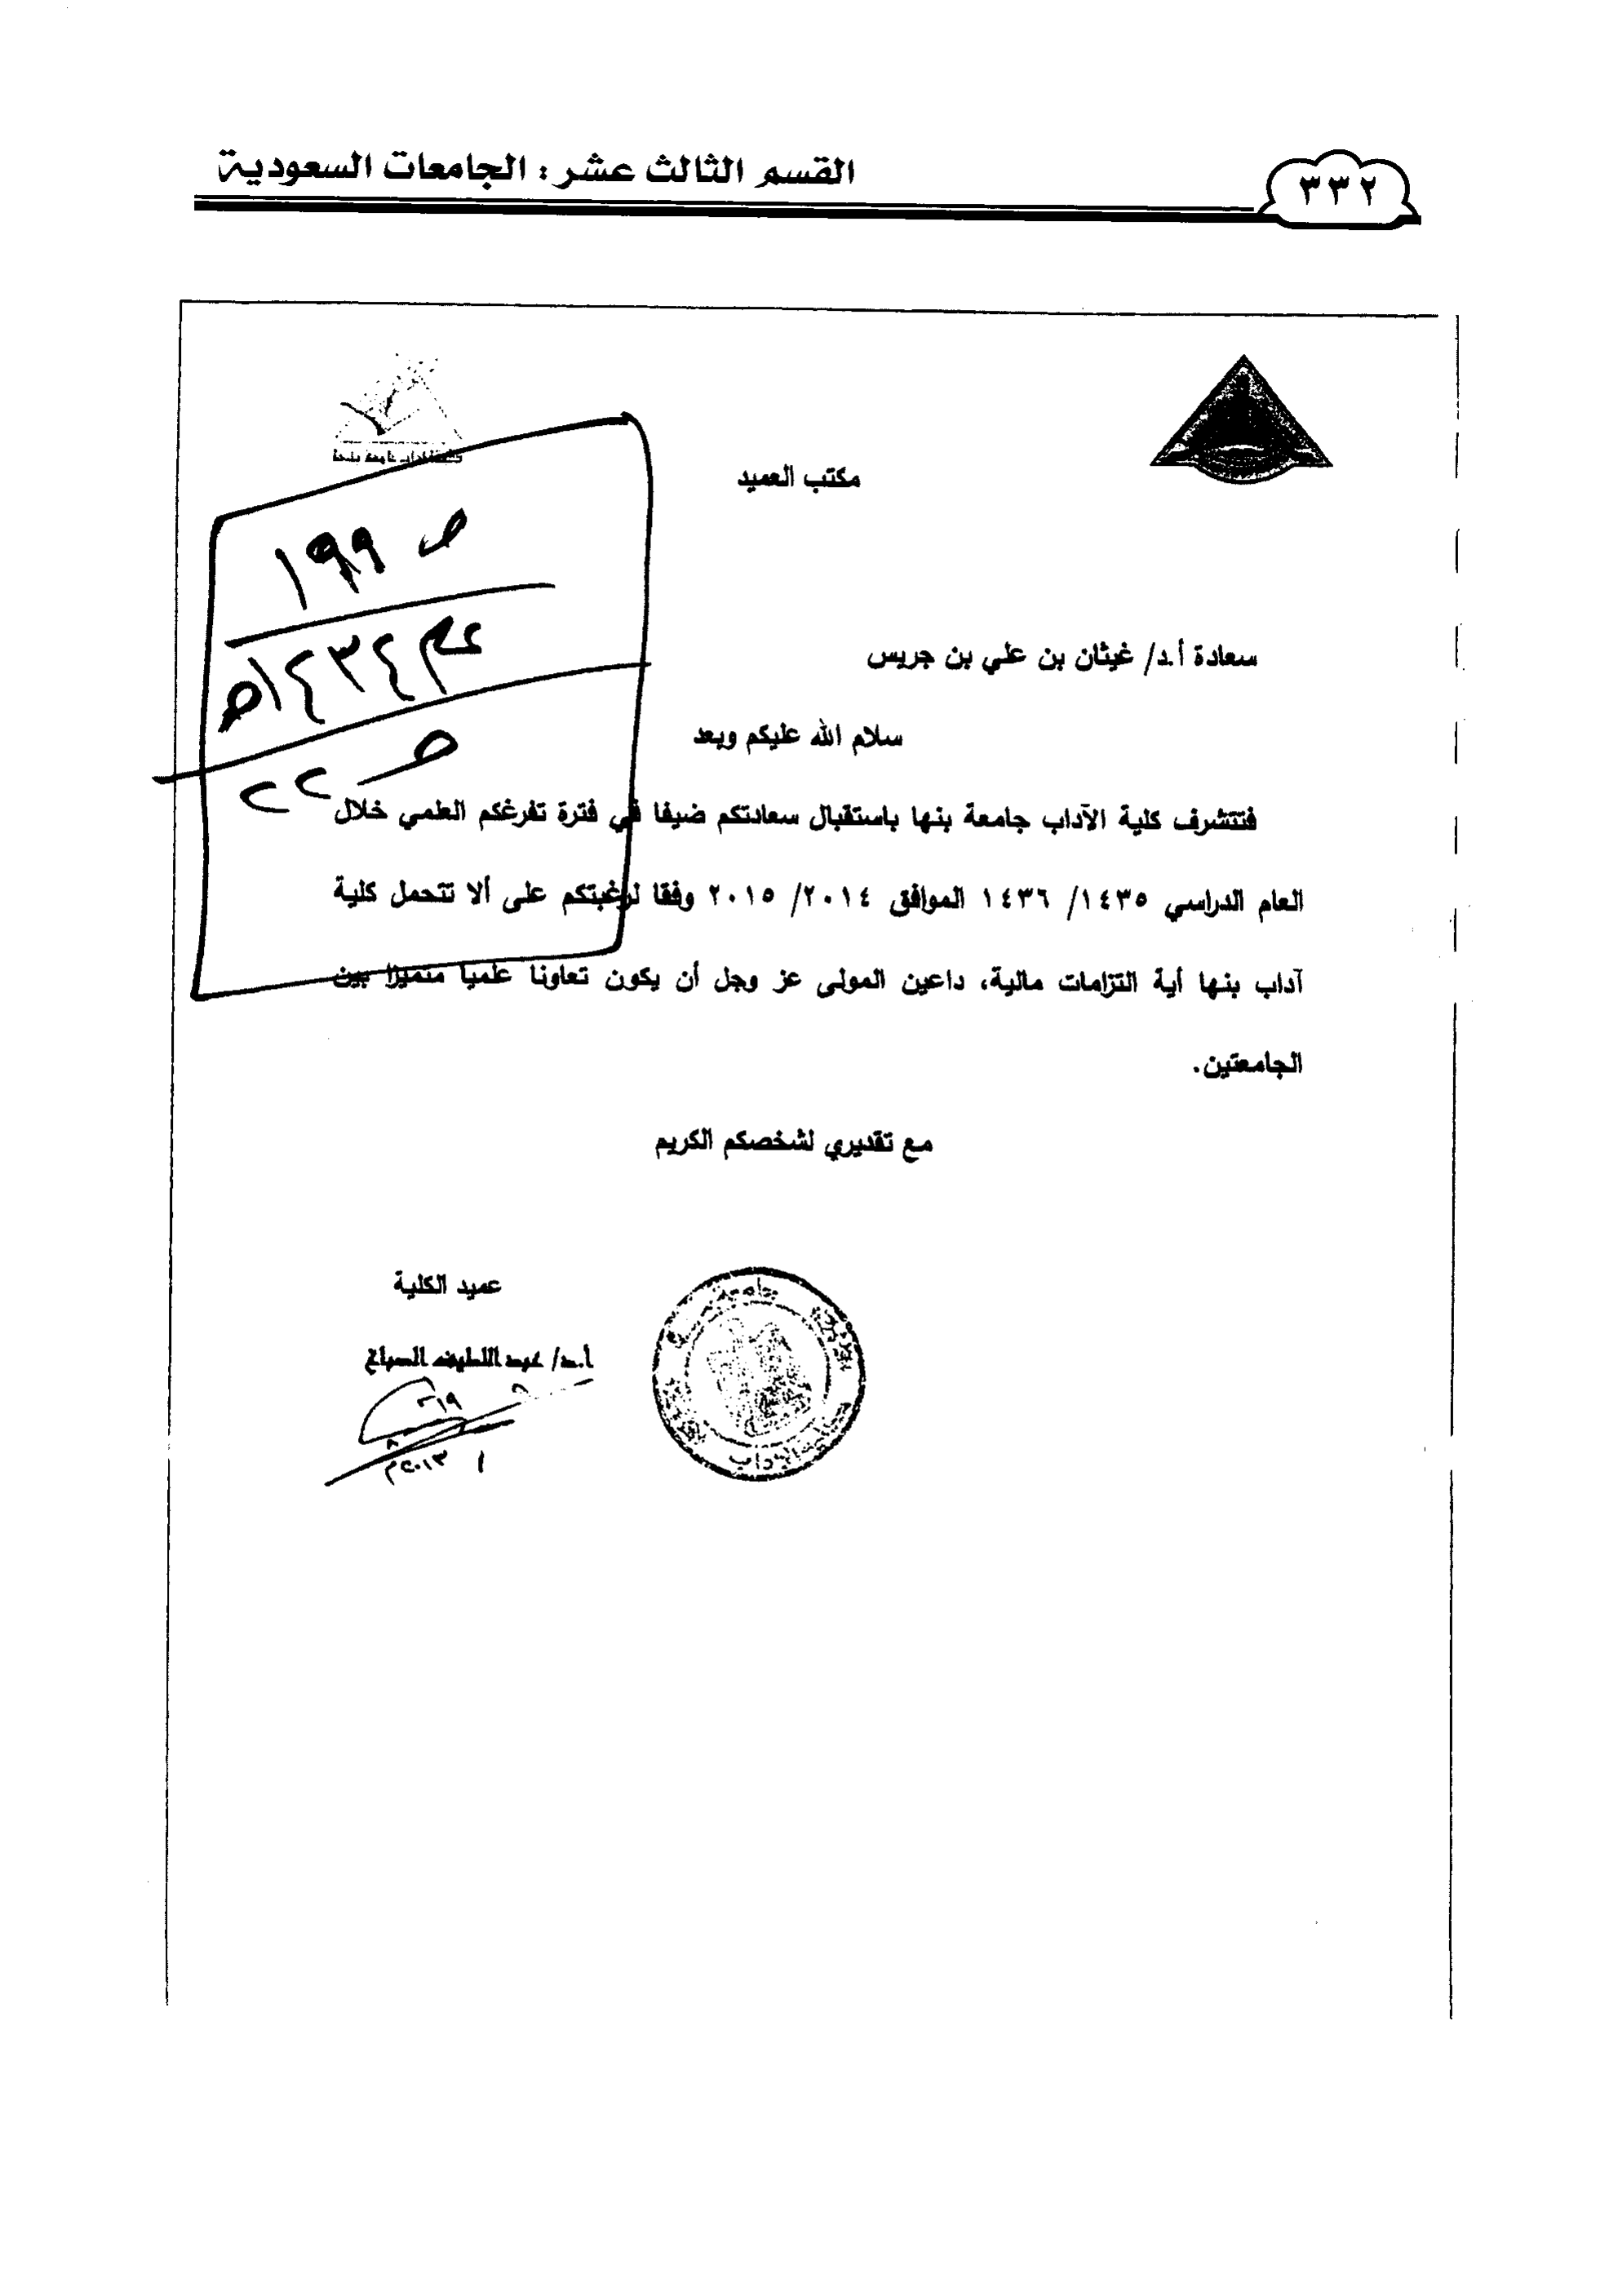 القسم الثالث عشر : الجامعات السعودية
٣٣٢
مكتب العميد
ص ١٩٩
عام ١٤٣٤هـ
ص ٢٢
سعادة أ.د/ غيثان بن علي بن جريس
سلام الله عليكم وبعد
فتتشرف كلية الآداب جامعة بنها باستقبال سعادتكم ضيفا في فترة تفرغكم العلمي خلال
العام الدراسي ١٤٣٥/ ١٤٣٦ الموافق ٢٠١٤/ ٢٠١٥ وفقا لرغبتكم على ألا تتحمل كلية
آداب بنها أية التزامات مالية، داعين المولى عز وجل أن يكون تعاونا علميا متميزا بين
الجامعتين.
مع تقديري لشخصكم الكريم
عميد الكلية
أ.د/ عبد اللطيف الصباغ